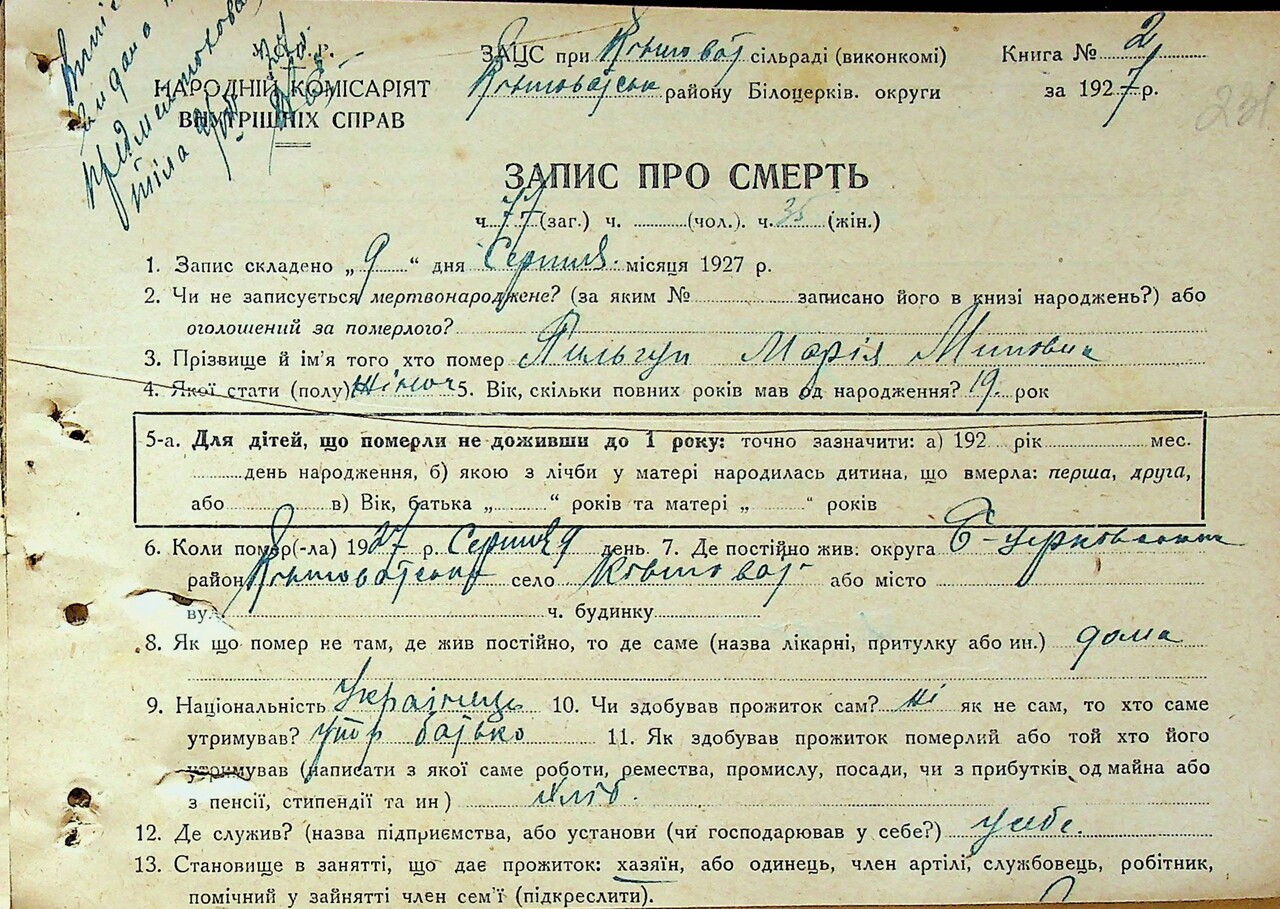 випис
видано
У.С.Р.Р. ЗАЦС при Ківшоват сільраді (виконкомі) Книга № 2
НАРОДНІЙ КОМІСАРІЯТ Ківшоватськ району Білоцерків. округи за 1927 р.
ВНУТРІШНІХ СПРАВ
231
ЗАПИС ПРО СМЕРТЬ
ч. 77 (заг.) ч. (чол.). ч. 35 (жін.)
1. Запис складено „ 9 “ дня Серпня місяця 1927 р.
2. Чи не записується мертвонароджене? (за яким № записано його в книзі народжень?) або
оголошений за померлого?
3. Прізвище й ім'я того хто помер Марія
4. Якої стати (полу) жіноч 5. Вік, скільки повних років мав од народження? 19. рок
5-а. Для дітей, що померли не доживши до 1 року: точно зазначити: а) 192 рік мес.
день народження, б) якою з лічби у матері народилась дитина, що вмерла: перша, друга,
або в) Вік, батька „ “ років та матері „ “ років
6. Коли помер(-ла) 1927 р. Серпня 9 день 7. Де постійно жив: округа Б-церковська
район Ківшоватськ село Ківшоват або місто
вул. ч. будинку
8. Як що помер не там, де жив постійно, то де саме (назва лікарні, притулку або ин.) дома
9. Національність Українець 10. Чи здобував прожиток сам? ні як не сам, то хто саме
утримував? утр батько 11. Як здобував прожиток померлий або той хто його
утримував (написати з якої саме роботи, ремества, промислу, посади, чи з прибутків од майна або
з пенсії, стипендії та ин) хліб.
12. Де служив? (назва підприємства, або установи (чи господарював у себе?) у себе.
13. Становище в занятті, що дає прожиток: хазяїн, або одинець, член артілі, службовець, робітник,
помічний у зайнятті член сем'ї (підкреслити).